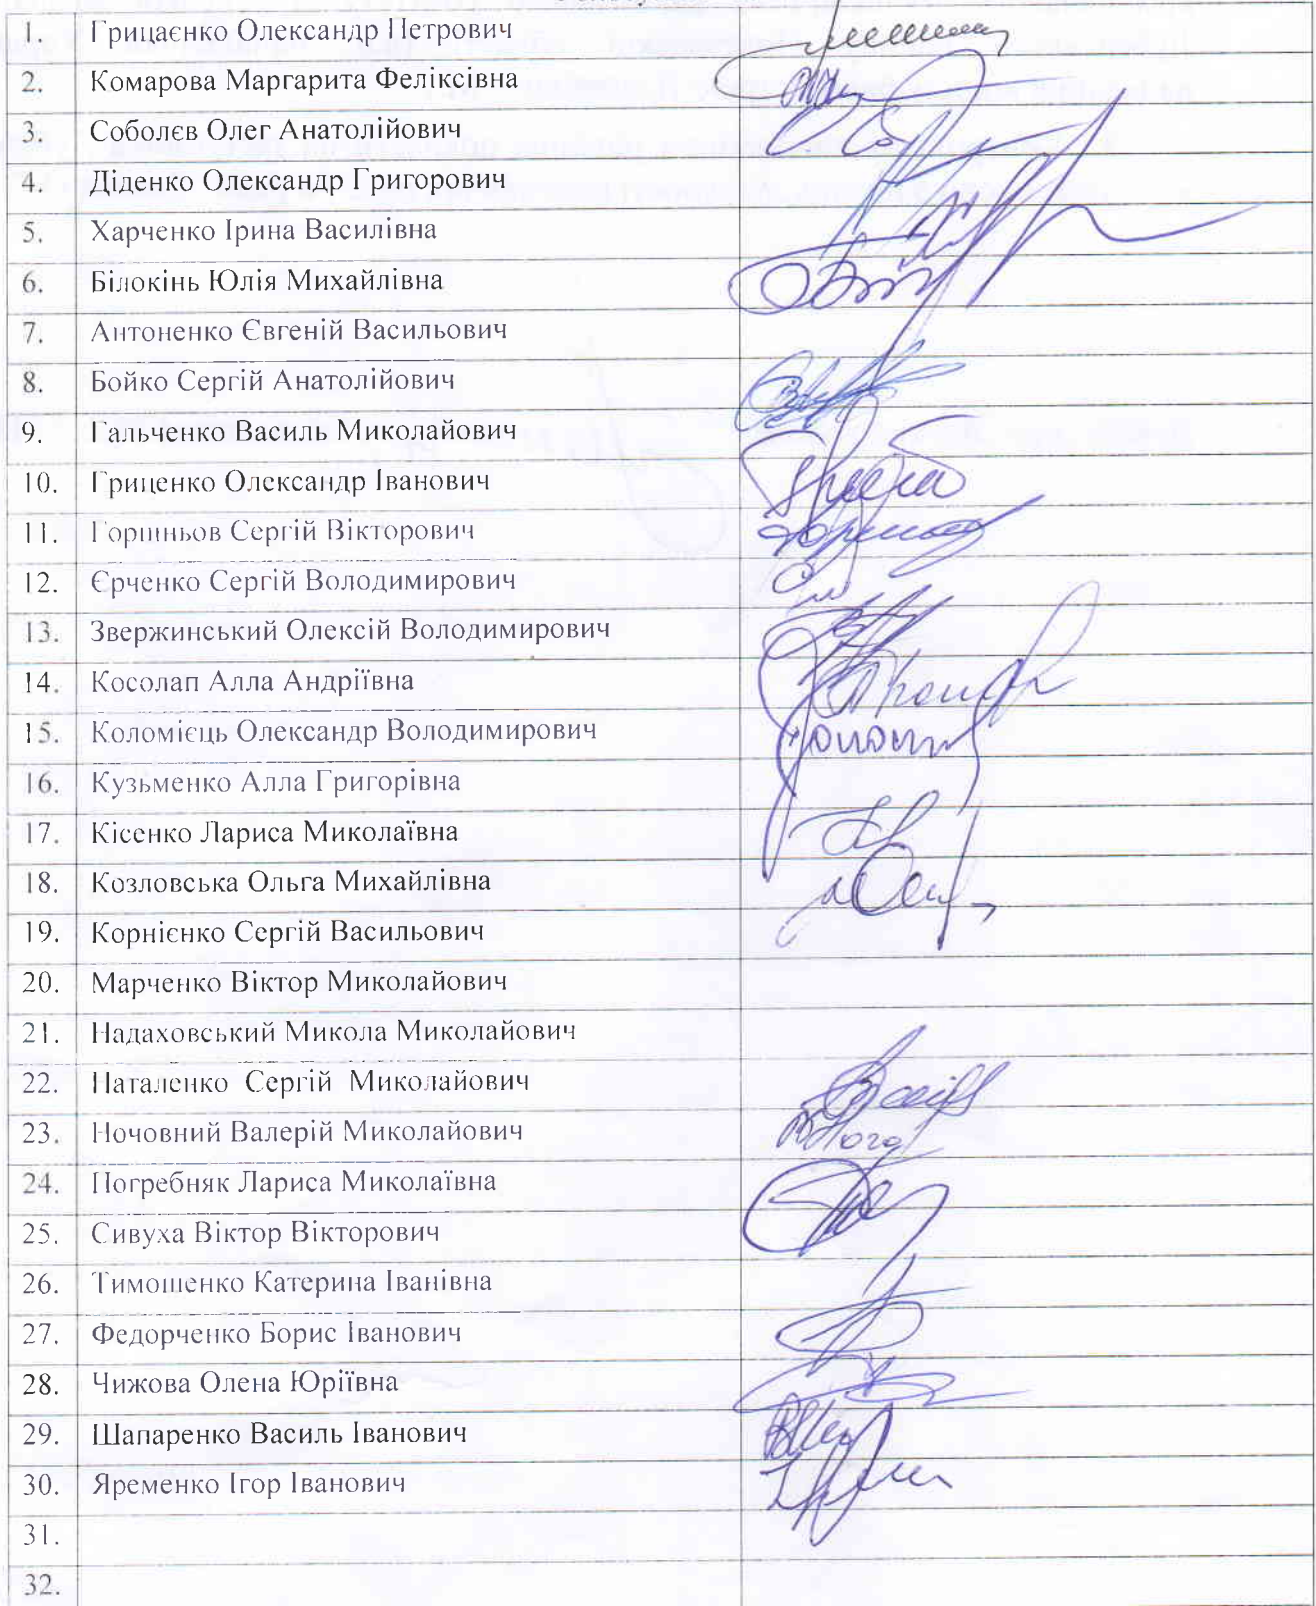 1. Грицаєнко Олександр Петрович
2. Комарова Маргарита Феліксівна
3. Соболєв Олег Анатолійович
4. Діденко Олександр Григорович
5. Харченко Ірина Василівна
6. Білокінь Юлія Михайлівна
7. Антоненко Євгеній Васильович
8. Бойко Сергій Анатолійович
9. Гальченко Василь Миколайович
10. Гриценко Олександр Іванович
11. Горшньов Сергій Вікторович
12. Єрченко Сергій Володимирович
13. Звержинський Олексій Володимирович
14. Косолап Алла Андріївна
15. Коломієць Олександр Володимирович
16. Кузьменко Алла Григорівна
17. Кісенко Лариса Миколаївна
18. Козловська Ольга Михайлівна
19. Корнієнко Сергій Васильович
20. Марченко Віктор Миколайович
21. Надаховський Микола Миколайович
22. Наталенко Сергій Миколайович
23. Ночовний Валерій Миколайович
24. Погребняк Лариса Миколаївна
25. Сивуха Віктор Вікторович
26. Тимошенко Катерина Іванівна
27. Федорченко Борис Іванович
28. Чижова Олена Юріївна
29. Шапаренко Василь Іванович
30. Яременко Ігор Іванович
31.
32.